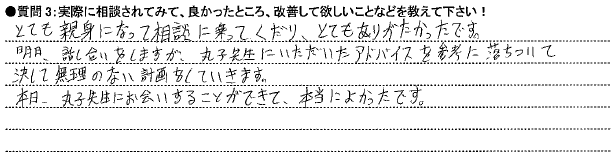 ●質問3:実際に相談されてみて、良かったところ、改善して欲しいことなどを教えて下さい!
とても親身になって相談に乗ってくださり、とてもありがたかったです。
明日、話し合いをしますが、丸子先生にいただいたアドバイスを参考に落ちついて
決して無理のない計画をしていきます。
本日、丸子先生にお会いすることができて、本当によかったです。